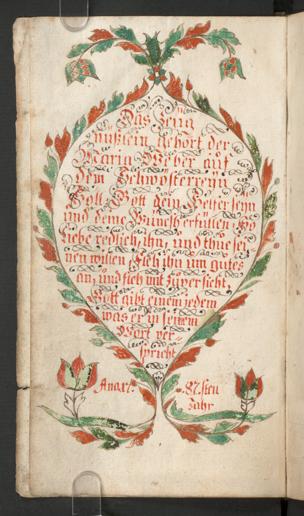 Das
nüßlein gehört der
Maria Weber auf
dem
Soll Gott dein Helfer seyn
und deine Wünsch erfüllen, so
liebe redlich ihn, und thue sei
nen willen Fleh ihn um gutes
an, und sieh mit zuversicht
Gott gibt einem jedem
was er in seinem
Wort ver
spricht
Jahr